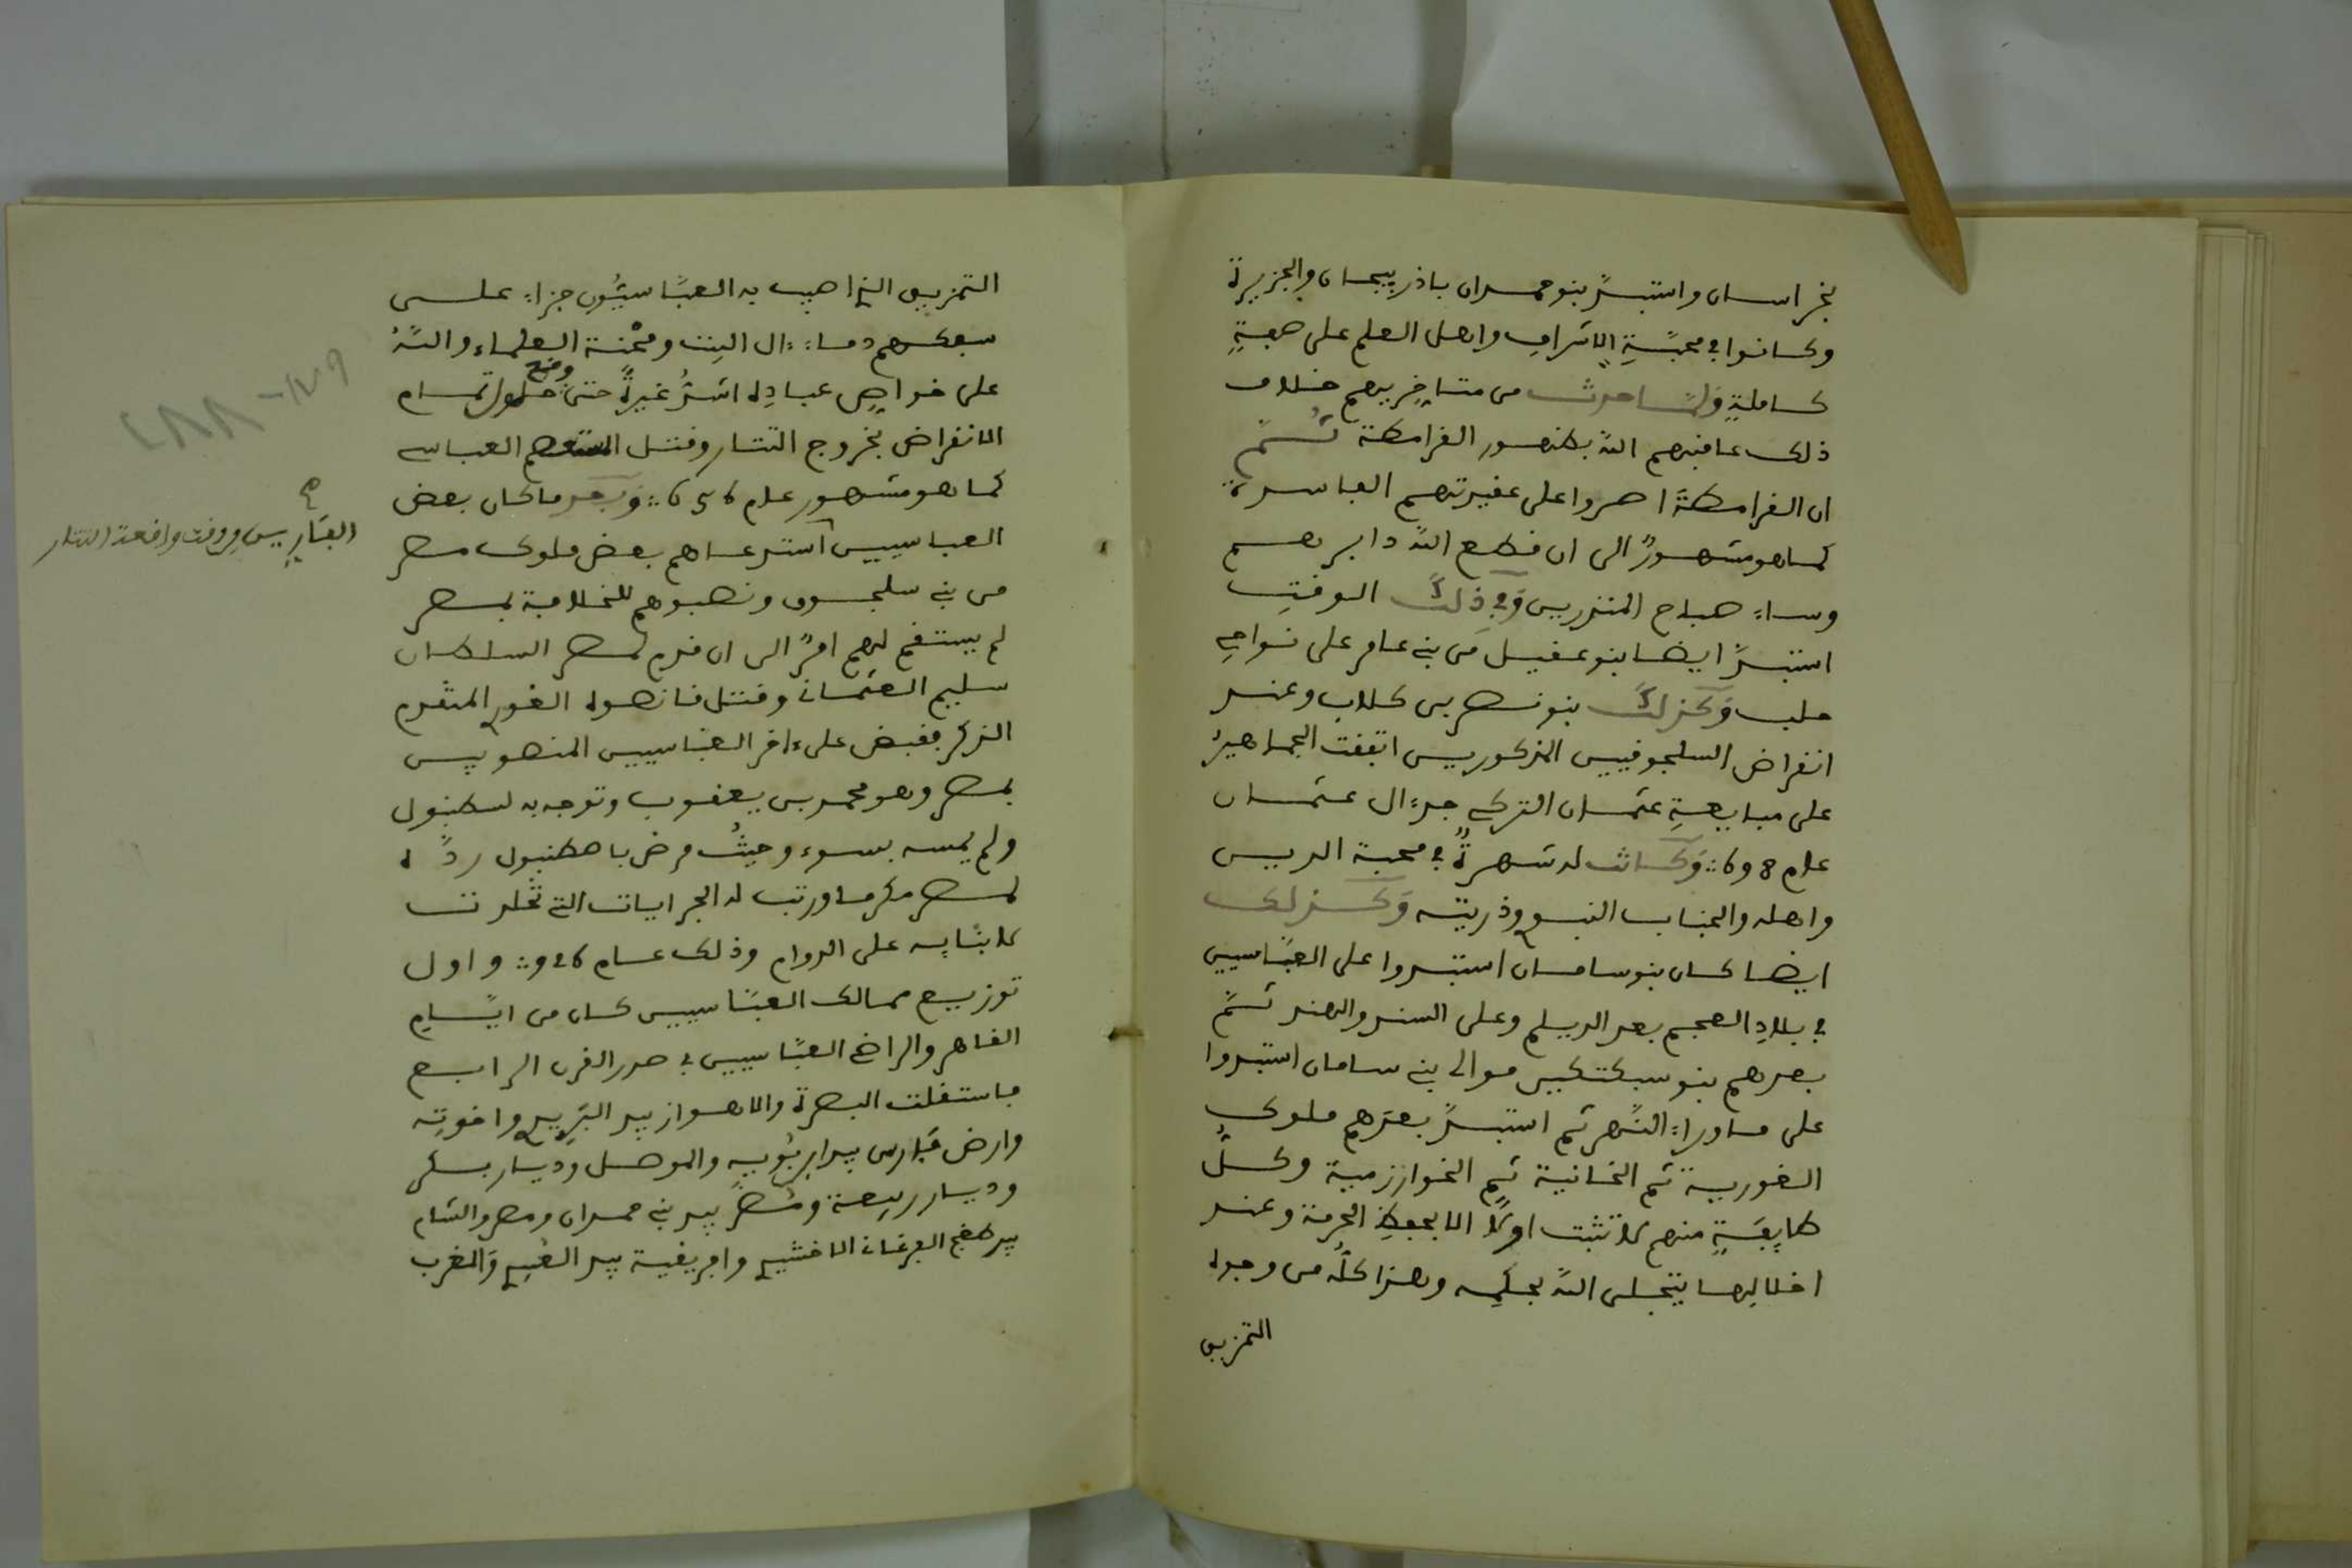 بخراسان واستبدّ بنو حمدان باذربيجان والجزيرة
وكانوا في محبّةِ الاشرافِ واهل العلم على صفةٍ
كاملةٍ وَلمّا حدث من متاخِّريهم خلاف
ذلك عاقبهم اللّه بظهور القرامطة ثمّ
ان القرامطةَ اصروا على عقيدتهم الفاسدة
كما هو مشهورٌ الى ان قطع اللّه دابرهم
وساءَ صباح المنذرين وَفي ذلكَ الوقتِ
استبدّ ايضا بنو عقيل من بني عامر على نواحي
حلب وَكذلكَ بنو نصر بن كلاب وعند
انقراض السلجوقيين المذكورين اتفقت الجماهيرُ
على مبايعةِ عثمان التركي جدِّ ءال عثمان
عام 698 وَكانت له شهرةٌ في محبة الدين
واهله والجناب النبوي وذريته وَكذلك
ايضا كان بنو سامان استبدوا على العبّاسيين
في بلادِ العجم بعد الديلم وعلى السند والهند ثمّ
بعدهم بنو سبكتكين موالى بني سامان استبدوا
على ما وراءَ النّهر ثم استبدّ بعدَهم ملوك
الغورية ثم الخانية ثم الخوارزمية وكلّ
طايفةٍ منهم لا تثبت اوّلاً الا بحفظِ الحرمة وعند
اخلالِها يتجلى اللّه بحكمِه وهذا كلّه من وجوه
التمزيق
التمزيق الذي اصيب به العبّاسيُّون جزاءً على
سفكهم دماءَ ءال البيت ومحْنة العلماء واللّهُ
على خواصِ عبادِه اشدُّ غيرةً حتى وقع حلول تمام
الانقراض بخروج التتار وقتل المستعصم العباسي
كما هو مشهور عام 656 وَبعد ما كان بعض
العباسيين استدعاهم بعض ملوك مصر
الفَارّين في وقت واقعة التتار
صح
من بني سلجوق ونصبوهم للخلافة بمصر
لم يستقم لهم امرٌ الى ان قدم لمصر السلطان
سليم العثماني وقتل قانصوه الغوري المتقدم
الذكر فقبض على ءاخر العبّاسيين المنصوبين
بمصر وهو محمد بن يعقوب وتوجه به لسطنبول
ولم يمسه بسوء وحيثُ مرض باصطنبول ردّه
لمصر مكرما ورتب له الجرايات التي تخلدت
لابنايه على الدوام وذلك عام 926 واول
توزيع ممالك العبّاسيين كان من ايّام
القاهر والراضي العبّاسيين في صدر القرن الرابع
فاستقلت البصرة والاهواز بيد البَرِيدي واخوتِه
وارض فَارس بيد ابن بُوَيه والموصل وديار بكر
وديار ربيعة ومُضر بيد بني حمدان ومصر والشام
بيد طغج الفرغاني الاخشيدي وافريقية بيد العُبيدي وَالمغرب